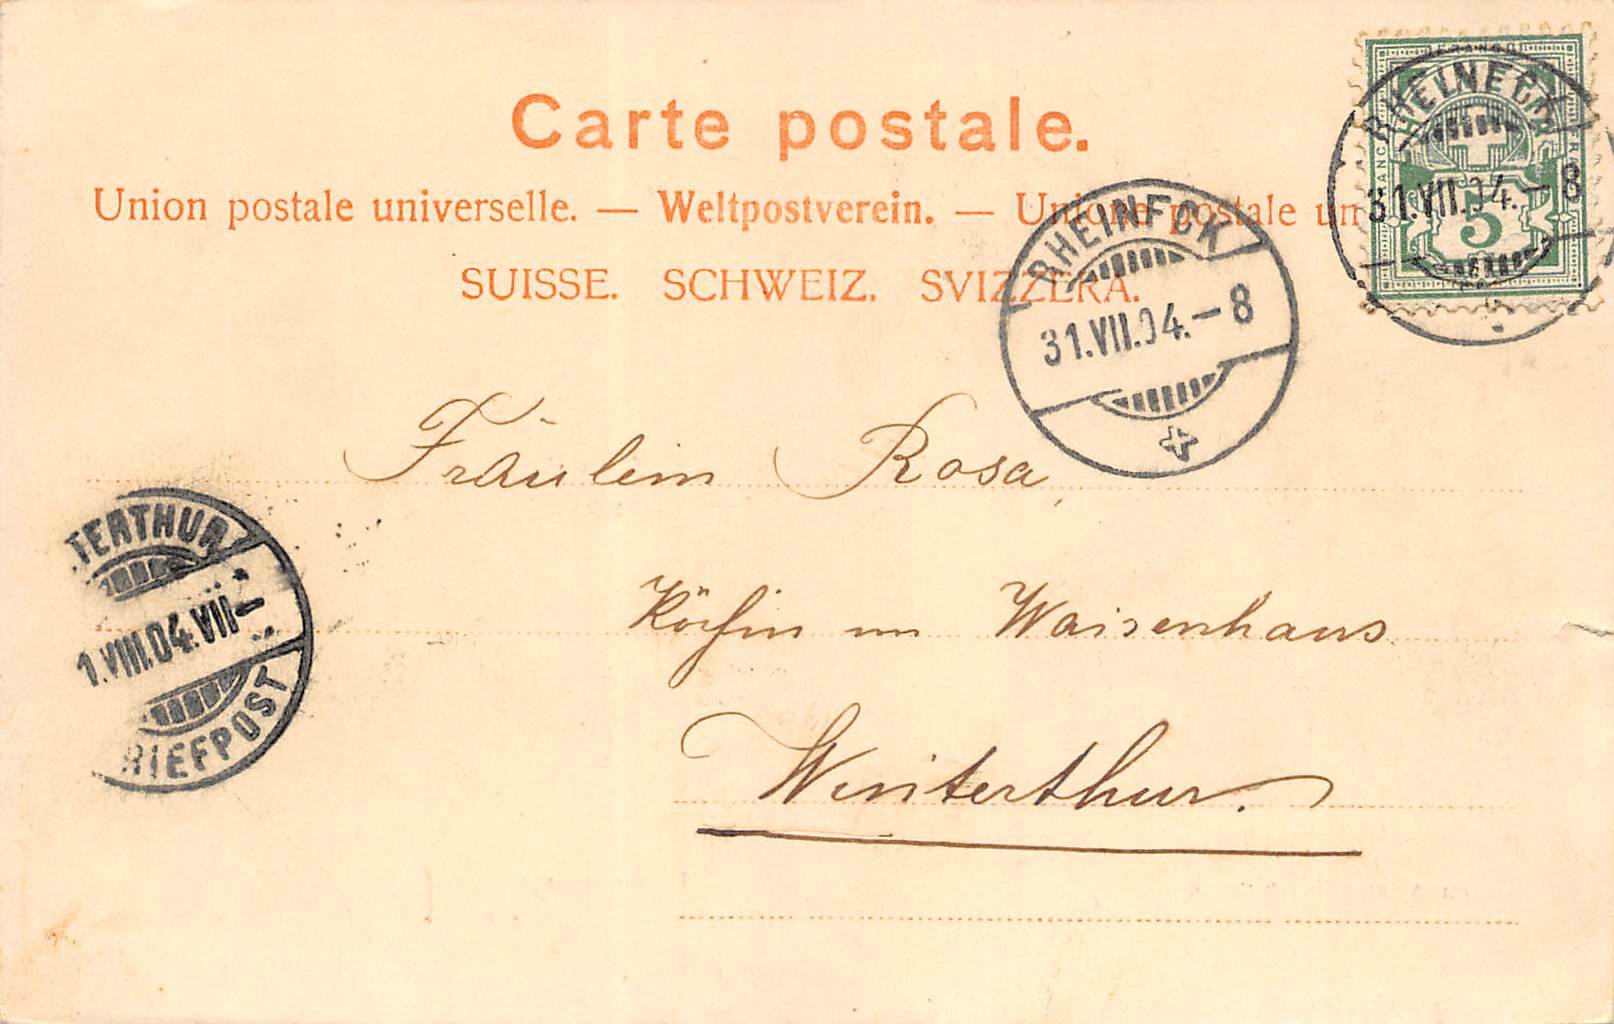 Carte postale.
Union postale universelle. — Weltpostverein. — Unione postale un
SUISSE. SCHWEIZ. SVIZZERA.
FRANCO
HELVETIA
5
RHEINECK
31.VII.04.-8
RHEINECK
31.VII.04.-8
Fräulein Rosa,
Köchin im Waisenhaus
Winterthur.
TERTHUR
1.VIII.04.VII-
RIEFPOST